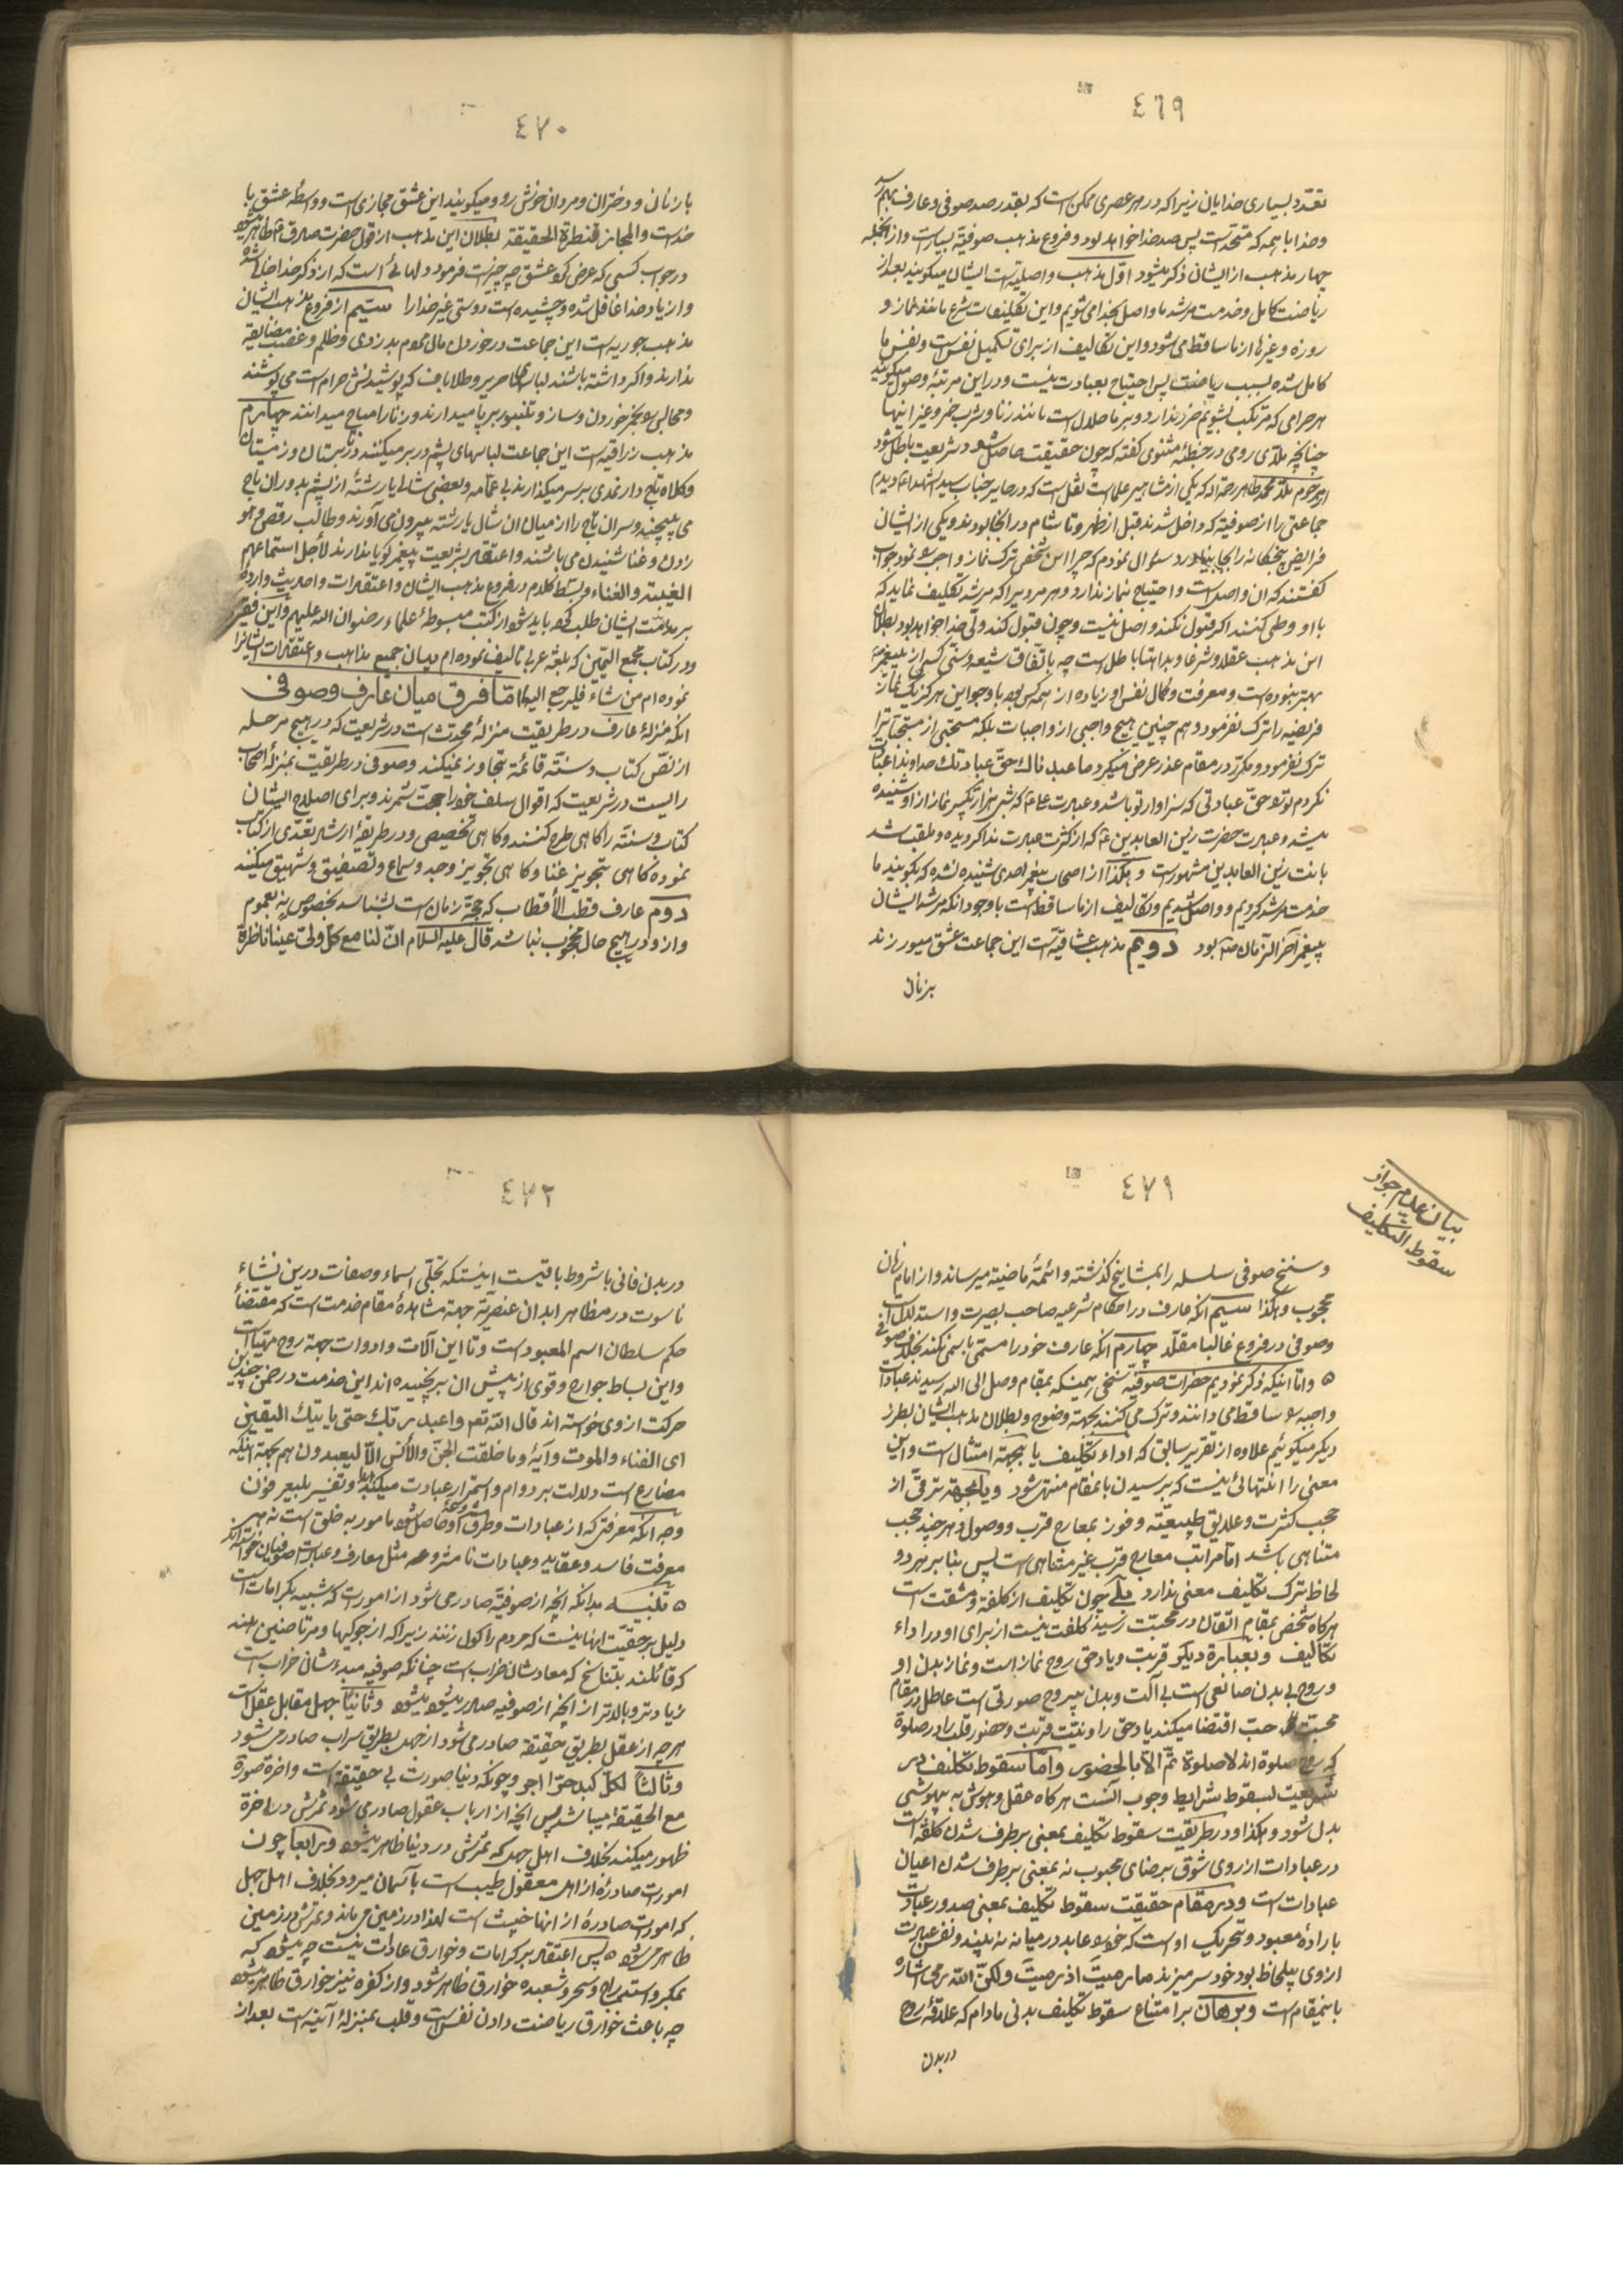 ٤٦٩
تعدّد بسیاری خدایان زیرا که در هر عصری ممکن است که بقدر صد صوفی و عارف بهم رسد
و خدا با همه که متحد است پس صد خدا خواهد بود و فروع مذهب صوفیّه بسیار است و از آنجمله
چهار مذهب از ایشان ذکر میشود اوّل مذهب واصلیّه است ایشان میگویند بعد از
ریاضت کامل و خدمت مرشد ما واصل بخدا می شویم و این تکلیفات شرع مانند نماز و
روزه و غیرها از ما ساقط می شود و این تکالیف از برای تکمیل نفس است و نفس ما
کامل شده بسبب ریاضت پس احتیاج بعبادت نیست و در این مرتبهٔ وصول میگویند
هر حرامی که مرتکب بشویم ضرر ندارد و بر ما حلال است مانند زنا و شرب خمر و غیر اینها
چنانچه ملّای رومی در خطبهٔ مثنوی گفته که چون حقیقت حاصل شود شریعت باطل شود
از مرحوم ملّا محمد طاهر رحمه الله که یکی از مشاهیر علما است نقل است که در حایر جناب سید الشهداء ع دیدم
جماعتی را از صوفیّه که داخل شدند قبل از ظهر و تا شام در آنجا بودند و یکی از ایشان
فرایض پنجگانه را بجا نیاورد سئوال نمودم که چرا این شخص ترک نماز واجب نمود جواب
گفتند که ان واصل است و احتیاج نماز ندارد و هر مریدی را که مرشد تکلیف نماید که
با او وطی کنند اگر قبول نکند واصل نیست و چون قبول کند ولی خدا خواهد بود بطلان
این مذهب عقلا و شرعا و بداهتا باطل است چه باتّفاق شیعه و سنّی کسی از پیغمبر
بهتر نبوده است و معرفت و کمال نفس او زیاده از همه کس بود با وجود این هرگز یک نماز
فریضه را ترک نفرمود و هم چنین هیچ واجبی از واجبات بلکه مستحبّی از مستحبّات را
ترک نفرمود و مکرّر در مقام عذر عرض میکرد ما عبدناک حقّ عبادتک خداوندا عبادت
نکردم تو را حقّ عبادتی که سزاوار تو باشد و عبادت علی ع که شبی هزار تکبیر نماز از او شنیده
میشد و عبادت حضرت زین العابدین ع که از کثرت عبادت نداکرده و ملقب شد
بانت زین العابدین مشهور است و هکذا از اصحاب پیغمبر احدی شنیده نشده که بگویند ما
خدمت مرشد کردیم و واصل شدیم و تکالیف از ما ساقط است با وجود آنکه مرشد ایشان
پیغمبر آخر الزمان ص بود دویم مذهب عشاقیّه است این جماعت عشق میورزند
بزنان
٤٧٠
با زنان و دختران و مردان خوش رو و میگویند این عشق مجازی است و واسطهٔ عشق با
خداست و المجاز قنطرة الحقیقة بطلان این مذهب از قول حضرت صادق ع ظاهر میشود
در جواب کسی که عرض کرد عشق چه چیز است فرمود دلهائی است که از ذکر خدا خالی شده
و از یاد خدا غافل شده و چشیده است دوستی غیر خدا را سیّم از فروع مذهب ایشان
مذهب جوریه است این جماعت در خوردن مال مردم بدزدی و ظلم و غصب مضایقه
ندارند و اگر داشته باشند لباسهای حریر و طلا باف که پوشیدنش حرام است می پوشند
و مجالس بهجر خوردن و ساز و تنبور برپا میدارند و زنا را مباح میدانند چهارم
مذهب زراقیه است این جماعت لباسهای پشم در بر میکنند در تابستان و زمستان
و کلاه تاج دار نمدی بر سر میگذارند بی عمّامه و بعضی شالی یا رشتهٔ از پشم بدور ان تاج
می پیچند و سران تاج را از میان ان شال یا رشته بیرون می آورند و طالب رقص و دف
زدن و غنا شنیدن می باشند و اعتقاد بشریعت پیغمبر گویا ندارند لأجل استماعهم
الغیبة و الغناء و بسط کلام در فروع مذهب ایشان و اعتقادات و احادیث وارده
بر مذمّت ایشان طلب کرد باید شود از کتب مبسوطهٔ علماء رضوان الله علیهم و این فقیر
در کتاب مجمع الیتیمین که بلغهٔ عربی تالیف نموده ام بیان جمیع مذاهب و اعتقادات ایشانرا
نموده ام من شاء فلیرجع الیه امّا فرق میان عارف و صوفی
انکه منزلهٔ عارف در طریقت منزلهٔ محدّث است در شریعت که در هیچ مرحله
از نصّ کتاب و سنّة قائمة تجاوز نمیکند و صوفی در طریقت بمنزلهٔ اصحاب
رأیست در شریعت که اقوال سلف خود را حجّت شمرند و برای اصلاح ایشان
کتاب و سنّه را کاهی طرح کنند و کاهی تخصیص و در طریقهٔ ارشاد تعدّی از کتاب
نموده کاهی بتجویز غنا و کاهی تجویز وجد و سماع و تصفیق و شهیق میکنند
دوم عارف قطب الأقطاب که حجّة زمان است بشناسد بخصوص نه بعموم
و از او در هیچ حال محجوب نباشد قال علیه السلام انّ لنا مع کلّ ولیّ عینا ناظرة
٤٧١
بیان عدم جواز
سقوط التکلیف
و سنخ صوفی سلسله را بمشایخ گذشته و ائمّهٔ ماضیه میرساند و از امام زمان
محجوب و هکذا سیّم انکه عارف در احکام شرعیه صاحب بصیرت و استدلال است
و صوفی در فروع غالبا مقلّد چهارم انکه عارف خود را مسمّی باسمی نکند بخلاف صوفی
ه و امّا اینکه ذکر نمودیم حضرات صوفیّه شخص همینکه بمقام وصل الی الله رسیدند عبادات
واجبه را ساقط می دانند و ترک می کنند بجهة وضوح و بطلان مذهب ایشان بطرز
دیگر میگوئیم علاوه از تقریر سابق که اداء تکلیف یا بجهة امتثال است و این
معنی را انتهائی نیست که برسیدن بانمقام منتهی شود و یا بجهة ترقی از
حجب کثرت و علایق طبیعیّه و فوز بمعارج قرب و وصول و هر چند حجب
متناهی باشد امّا مراتب معارج قرب غیر متناهی است پس بنا بر هر دو
لحاظ ترک تکلیف معنی ندارد بلی چون تکلیف از کلفة و مشقّت است
هرگاه شخص بمقام اتّقان در محبّت رسید کلفت نیست از برای او در اداء
تکالیف و بعبارة دیگر قربت و یاد حق روح نماز است و نماز بدن او
و روح بی بدن صانعی است بی آلت و بدن بی روح صورتی است عاطل در مقام
محبّت حبّ اقتضا میکند یاد حق را و نیّت قربت و حضور قلب را در صلوة
که روح صلوة اند لا صلوة تمّ الّا بالحضور و امّا سقوط تکلیف در
شریعت بسقوط شرایط وجوب آنست هرگاه عقل و هوش به بیهوشی
بدل شود و هکذا و در طریقت سقوط تکلیف بمعنی برطرف شدن کلفة است
در عبادات از روی شوق برضای محبوب نه بمعنی برطرف شدن اعیان
عبادات است و در مقام حقیقت سقوط تکلیف بمعنی صدور عبادت
بارادهٔ معبود و تحریک او است که خود عابد در میانه نه بیند و نفس عبادت
از وی بیلحاظ بود خود سر میزند ما رمیت اذ رمیت و لکنّ الله رمی اشاره
باینمقام است و برهان بر امتناع سقوط تکلیف بدنی مادام که علاقهٔ روح
در بدن
٤٧٢
در بدن فانی با شروط باقیست اینستکه تجلّی اسماء و صفات درین نشاء
ناسوت در مظاهر ابدان عنصریّه جهة مشاهدهٔ مقام خدمت است که مقتضای
حکم سلطان اسم المعبود است و تا این آلات و ادوات جهة روح مهیّاست
و این بساط جوارح و قوی از پیش ان برنچیده اند این خدمت در ضمن چندین
حرکت از وی خواسته اند قال الله تعم و اعبد ربّک حتی یاتیک الیقین
ای الفناء و الموت و آیهٔ و ما خلقت الجنّ و الأنس الّا لیعبدون هم بجهة اینکه
مضارع است دلالت بر دوام و استمرار عبادت میکند و تفسیر بلیعرفون
وجه انکه معرفتی که از عبادات و طرق مشروعه حاصل شود مامور به خلق است نه هر
معرفت فاسد و عقاید و عبادات نا مشروعه مثل معارف و عبادات صوفیان
ه تنبیه بدانکه انچه از صوفیّه صادر می شود از امور است که شبیه بکرامات است
دلیل بر حقیّت انها نیست که مردم را گول زنند زیرا که از جوکیها و مرتاضین هند
که قائلند بتناسخ که معادشان خراب است چنانکه صوفیه مبدءشان خراب است
زیاد تر و بالاتر از انچه از صوفیه صادر میشود میشود و ثانیا جهل مقابل عقل است
هر چه از عقل بطریق حقیقة صادر می شود از جهل بطریق سراب صادر می شود
و ثالثا لکلّ کبد حرّا اجر و چونکه دنیا صورت بی حقیقة است و اخرة صورة
مع الحقیقة میباشد پس انچه از ارباب عقول صادر می شود ثمرش در اخرة
ظهور میکند بخلاف اهل جهل که ثمرش در دنیا ظاهر میشود و رابعا چون
امورات صادرهٔ از اهل معقول طیب است بآسمان میرود بخلاف اهل جهل
که امورات صادرهٔ از انها خبیث است لهذا در زمین میماند و ثمرش در زمین
ظاهر میشود ه پس اعتقاد بر کرامات و خوارق عادات نیست چه میشود که
بمکر و استدراج و سحر و شعبده خوارق ظاهر شود و از کفره نیز خوارق ظاهر میشود
چه باعث خوارق ریاضت دادن نفس است و قلب بمنزلهٔ آئینه است بعد از